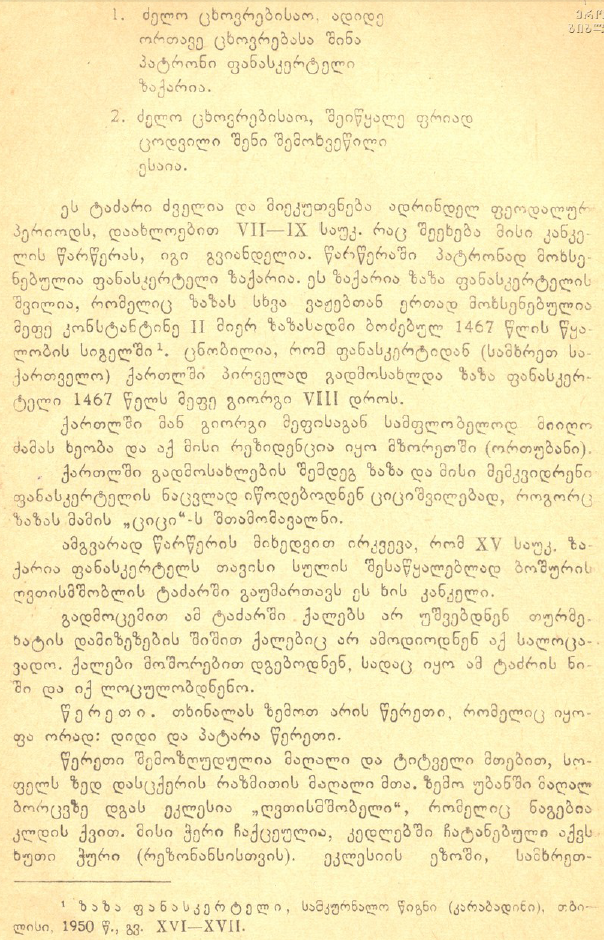 1. ძელო ცხოვრებისაო, ადიდე
ორთავე ცხოვრებასა შინა
პატრონი ფანასკერტელი
ზაქარია.
2. ძელო ცხოვრებისაო, შეიწყალე ფრიად
ცოდვილი შენი შემოხვეწილი
ესაია.
ეს ტაძარი ძველია და მიეკუთვნება ადრინდელ ფეოდალურ
პერიოდს, დაახლოებით VII—IX საუკ. რაც შეეხება მისი კანკე-
ლის წარწერას, იგი გვიანდელია. წარწერაში პატრონად მოხსე-
ნებულია ფანასკერტელი ზაქარია. ეს ზაქარია ზაზა ფანასკერტელის
შვილია, რომელიც ზაზას სხვა ვაჟებთან ერთად მოხსენებულია
მეფე კონსტანტინე II მიერ ზაზასადმი ბოძებულ 1467 წლის წყა-
ლობის სიგელში¹. ცნობილია, რომ ფანასკერტიდან (სამხრეთ სა-
ქართველო) ქართლში პირველად გადმოსახლდა ზაზა ფანასკერ-
ტელი 1467 წელს მეფე გიორგი VIII დროს.
ქართლში მან გიორგი მეფისაგან სამფლობელოდ მიიღო
ძამას ხეობა და აქ მისი რეზიდენცია იყო მზორეთში (ორთუბანი).
ქართლში გადმოსახლების შემდეგ ზაზა და მისი მემკვიდრენი
ფანასკერტელის ნაცვლად იწოდებოდნენ ციციშვილებად, როგორც
ზაზას მამის „ციცი“-ს შთამომავალნი.
ამგვარად წარწერის მიხედვით ირკვევა, რომ XV საუკ. ზა-
ქარია ფანასკერტელს თავისი სულის შესაწყალებლად ბოშურის
ღვთისმშობლის ტაძარში გაუმართავს ეს ხის კანკელი.
გადმოცემით ამ ტაძარში ქალებს არ უშვებდნენ თურმე.
ხატის დამიზეზების შიშით ქალებიც არ ამოდიოდნენ აქ სალოცა-
ვადო. ქალები მოშორებით დგებოდნენ, სადაც იყო ამ ტაძრის ნი-
ში და იქ ლოცულობდნენო.
წერეთი. თხინალას ზემოთ არის წერეთი, რომელიც იყო-
ფა ორად: დიდი და პატარა წერეთი.
წერეთი შემოზღუდულია მაღალი და ტიტველი მთებით, სო-
ფელს ზედ დასცქერის რაზმითის მაღალი მთა. ზემო უბანში მაღალ
ბორცვზე დგას ეკლესია „ღვთისმშობელი“, რომელიც ნაგებია
კლდის ქვით. მისი ჭერი ჩაქცეულია, კედლებში ჩატანებული აქვს
ხუთი ჭური (რეზონანსისთვის). ეკლესიის ეზოში, სამხრეთ-
¹ ზაზა ფანასკერტელი, სამკურნალო წიგნი (კარაბადინი), თბი-
ლისი, 1950 წ., გვ. XVI—XVII.